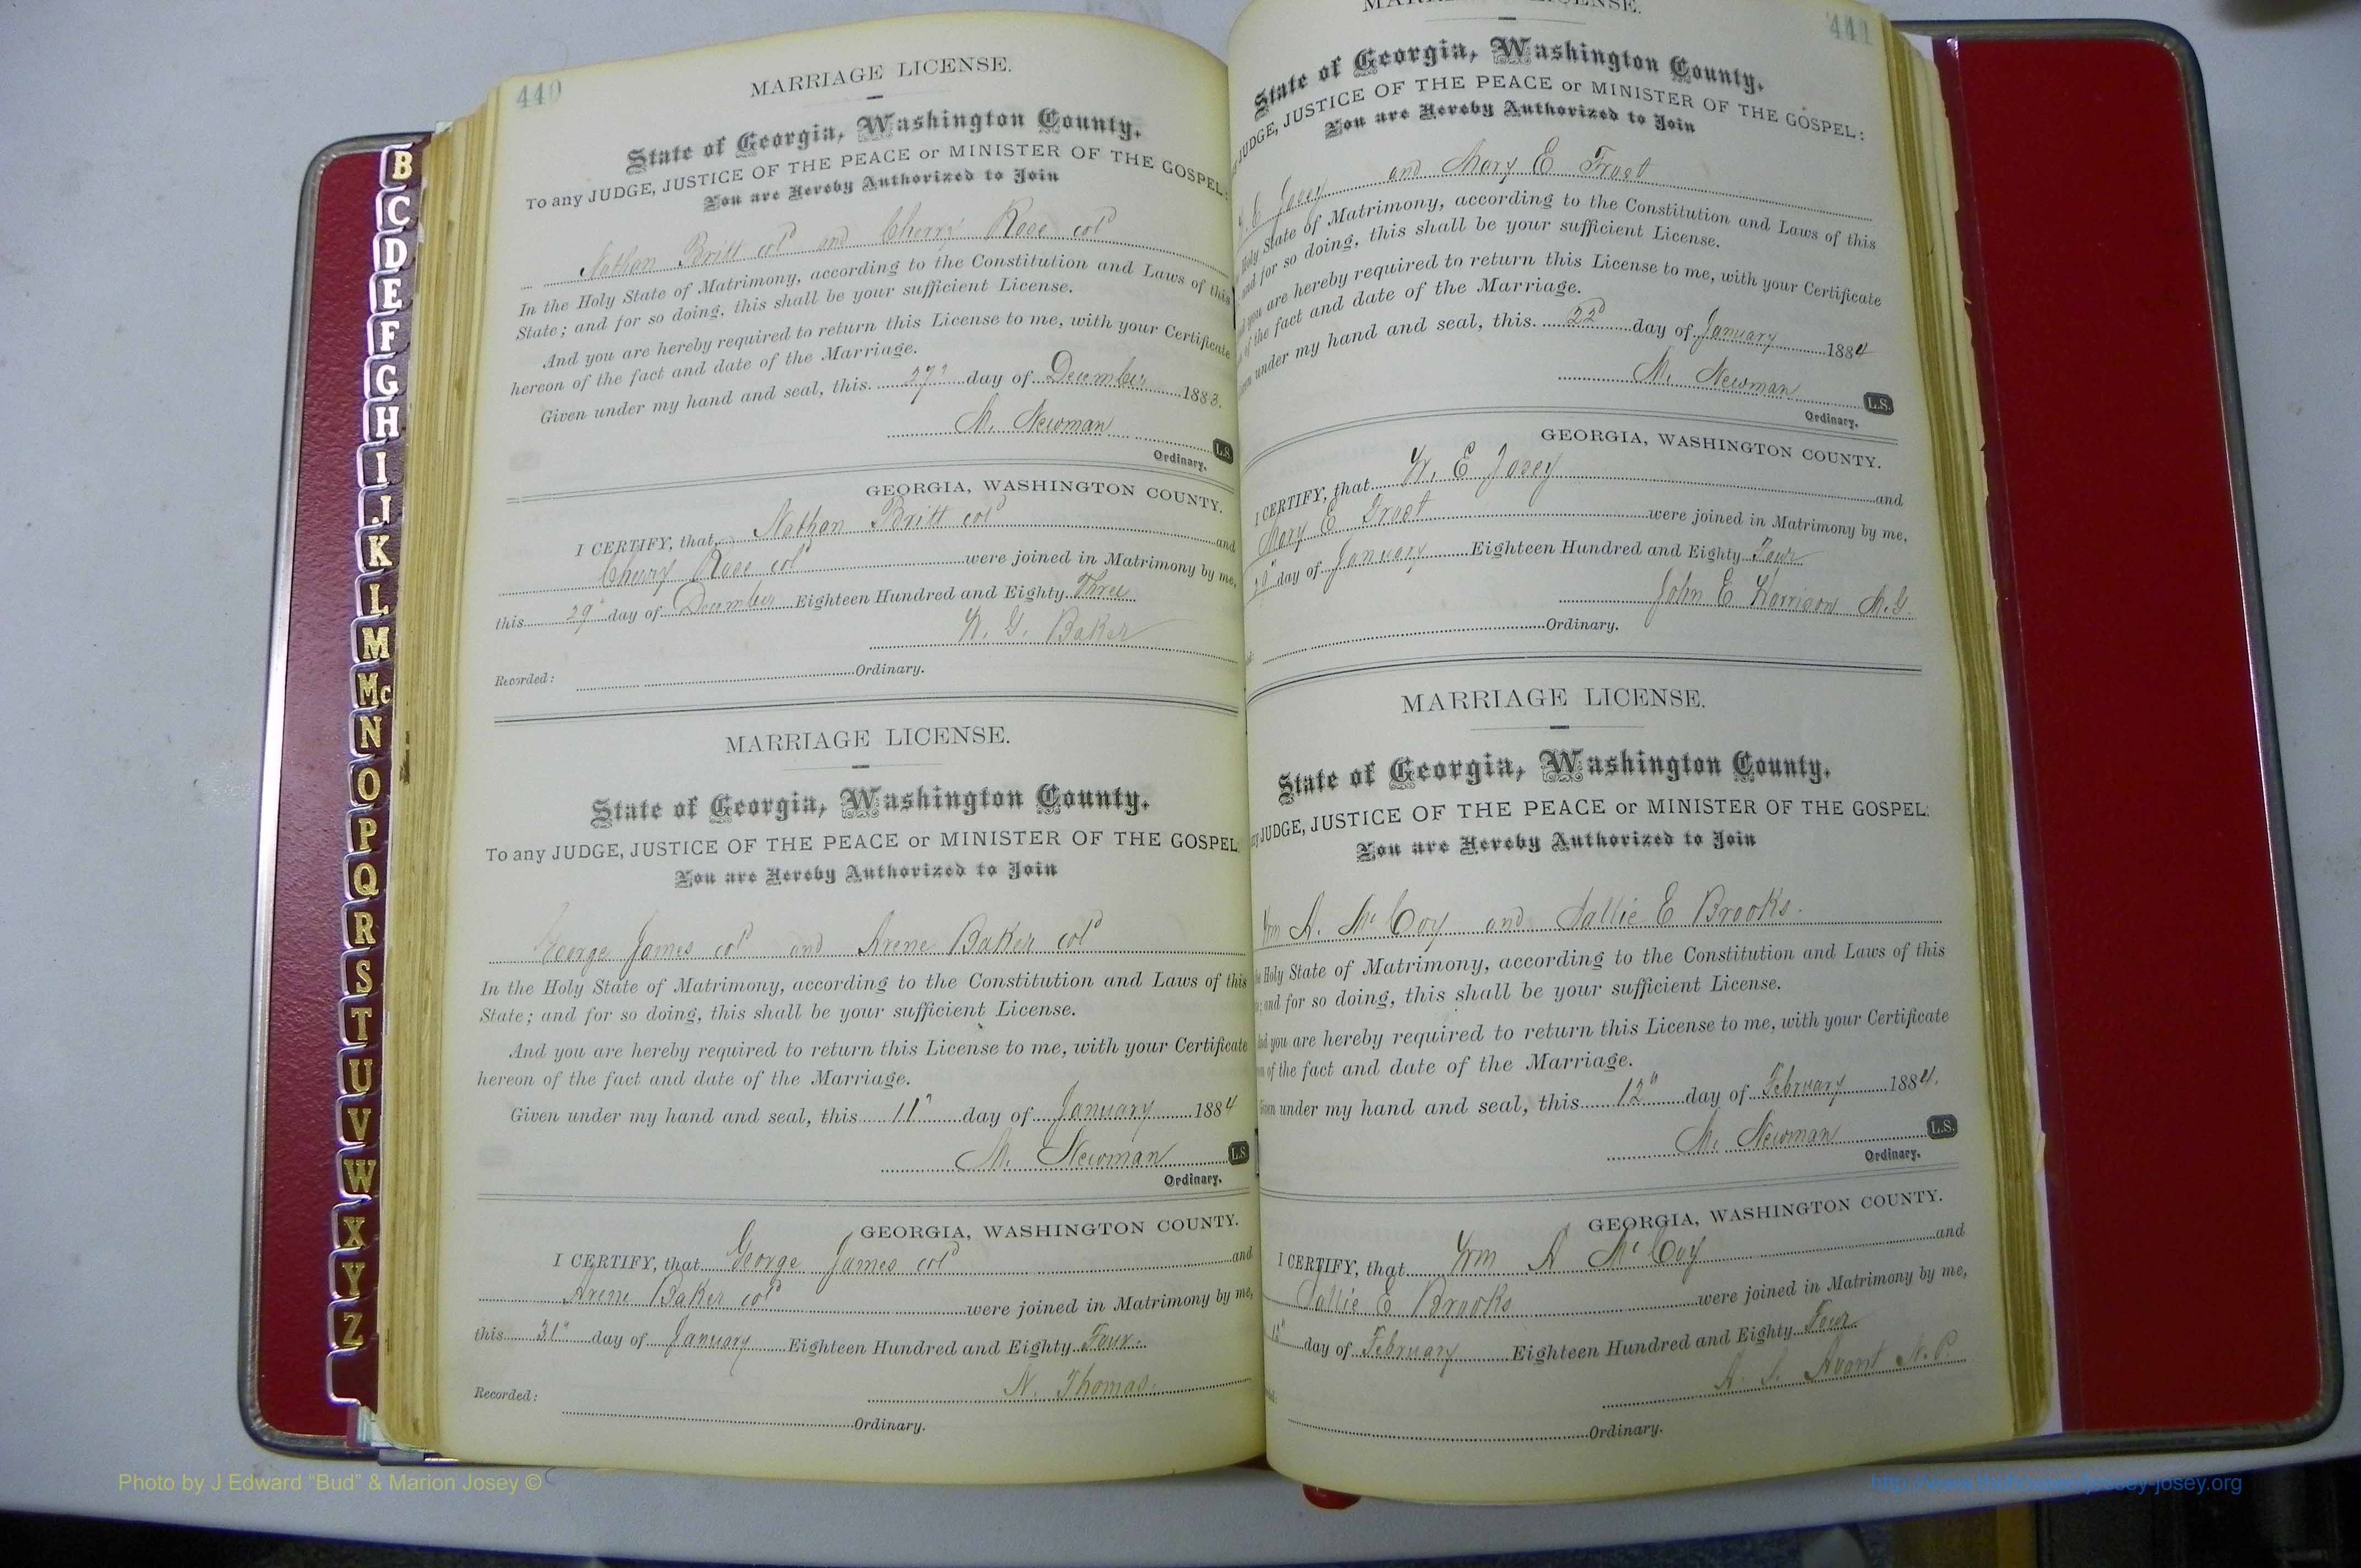 440
MARRIAGE LICENSE.
State of Georgia, Washington County.
To any JUDGE, JUSTICE OF THE PEACE or MINISTER OF THE GOSPEL:
You are Hereby Authorized to Join
Nathan Britt cold and Cherry Rose cold
In the Holy State of Matrimony, according to the Constitution and Laws of this
State; and for so doing, this shall be your sufficient License.
And you are hereby required to return this License to me, with your Certificate
hereon of the fact and date of the Marriage.
Given under my hand and seal, this 27" day of December 1883.
M. Newman L.S.
Ordinary.
GEORGIA, WASHINGTON COUNTY.
I CERTIFY, that Nathan Britt cold and
Cherry Rose cold were joined in Matrimony by me,
this 29" day of December Eighteen Hundred and Eighty Three
W. G. Baker
Recorded: Ordinary.
MARRIAGE LICENSE.
State of Georgia, Washington County.
To any JUDGE, JUSTICE OF THE PEACE or MINISTER OF THE GOSPEL
You are Hereby Authorized to Join
George James cold and Arene Baker cold
In the Holy State of Matrimony, according to the Constitution and Laws of this
State; and for so doing, this shall be your sufficient License.
And you are hereby required to return this License to me, with your Certificate
hereon of the fact and date of the Marriage.
Given under my hand and seal, this 11" day of January 1884
M. Newman L.S
Ordinary.
GEORGIA, WASHINGTON COUNTY.
I CERTIFY, that George James cold and
Arene Baker cold were joined in Matrimony by me,
this 31" day of January Eighteen Hundred and Eighty Four.
N. Thomas.
Recorded:
Ordinary.
MARRIAGE LICENSE.
441
State of Georgia, Washington County.
JUDGE, JUSTICE OF THE PEACE or MINISTER OF THE GOSPEL:
You are Hereby Authorized to Join
E Josey and Mary E Frost
Holy State of Matrimony, according to the Constitution and Laws of this
and for so doing, this shall be your sufficient License.
you are hereby required to return this License to me, with your Certificate
of the fact and date of the Marriage.
under my hand and seal, this 22d day of January 1884
M. Newman L.S.
Ordinary.
GEORGIA, WASHINGTON COUNTY.
I CERTIFY, that W. E Josey and
Mary E Frost were joined in Matrimony by me,
day of January Eighteen Hundred and Eighty Four
John E Harrison M.G.
Ordinary.
MARRIAGE LICENSE.
State of Georgia, Washington County.
JUDGE, JUSTICE OF THE PEACE or MINISTER OF THE GOSPEL:
You are Hereby Authorized to Join
Wm A. McCoy and Sallie E Brooks.
Holy State of Matrimony, according to the Constitution and Laws of this
and for so doing, this shall be your sufficient License.
And you are hereby required to return this License to me, with your Certificate
of the fact and date of the Marriage.
Given under my hand and seal, this 12" day of February 1884.
M. Newman L.S.
Ordinary.
GEORGIA, WASHINGTON COUNTY.
I CERTIFY, that Wm A McCoy and
Sallie E Brooks were joined in Matrimony by me,
day of February Eighteen Hundred and Eighty Four
A. S. Avant N.P.
Ordinary.
B
C
D
E
F
G
H
I
J
K
L
M
Mc
N
O
P
Q
R
S
T
U
V
W
X
Y
Z
Photo by J Edward “Bud” & Marion Josey ©